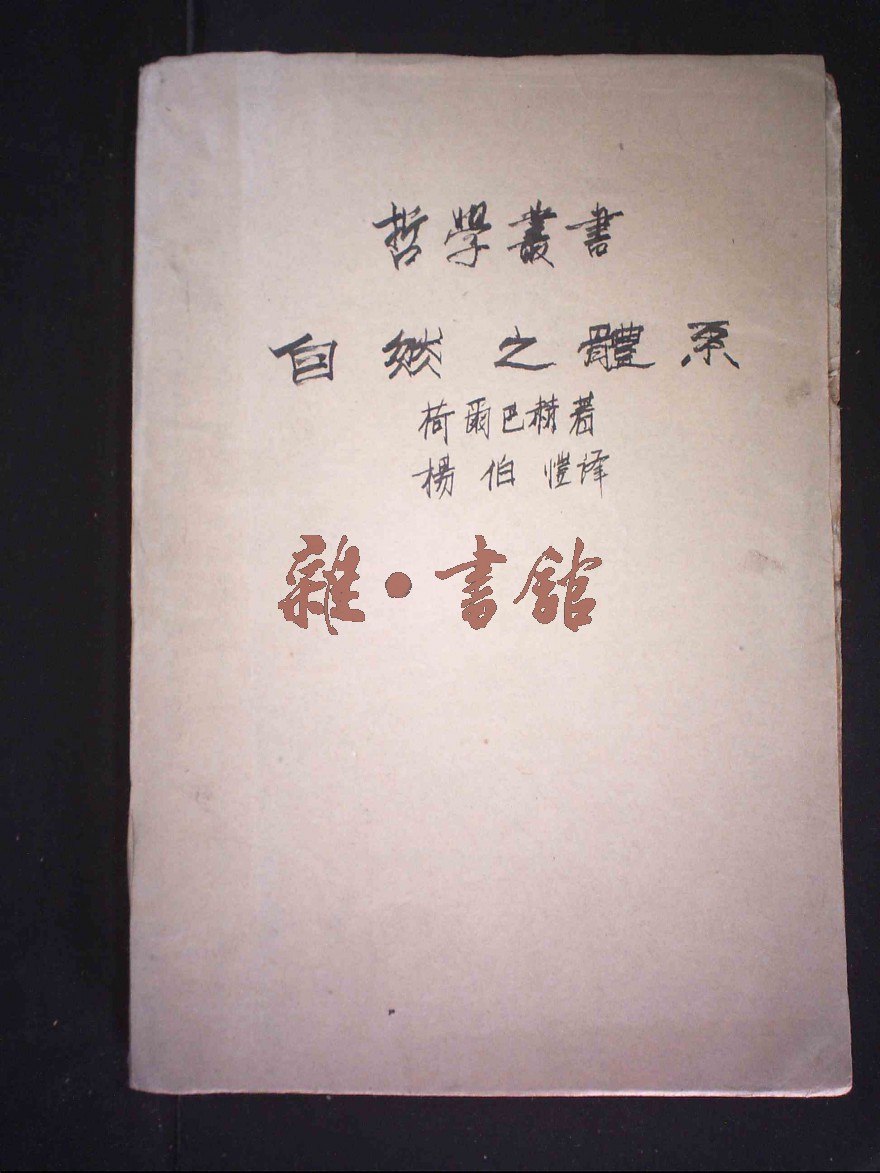 哲學叢書
自然之體系
荷爾巴赫著
楊伯愷译
雜·書館